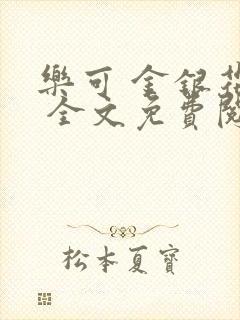 樂可 金銀花
全文免費閱
松本夏寶